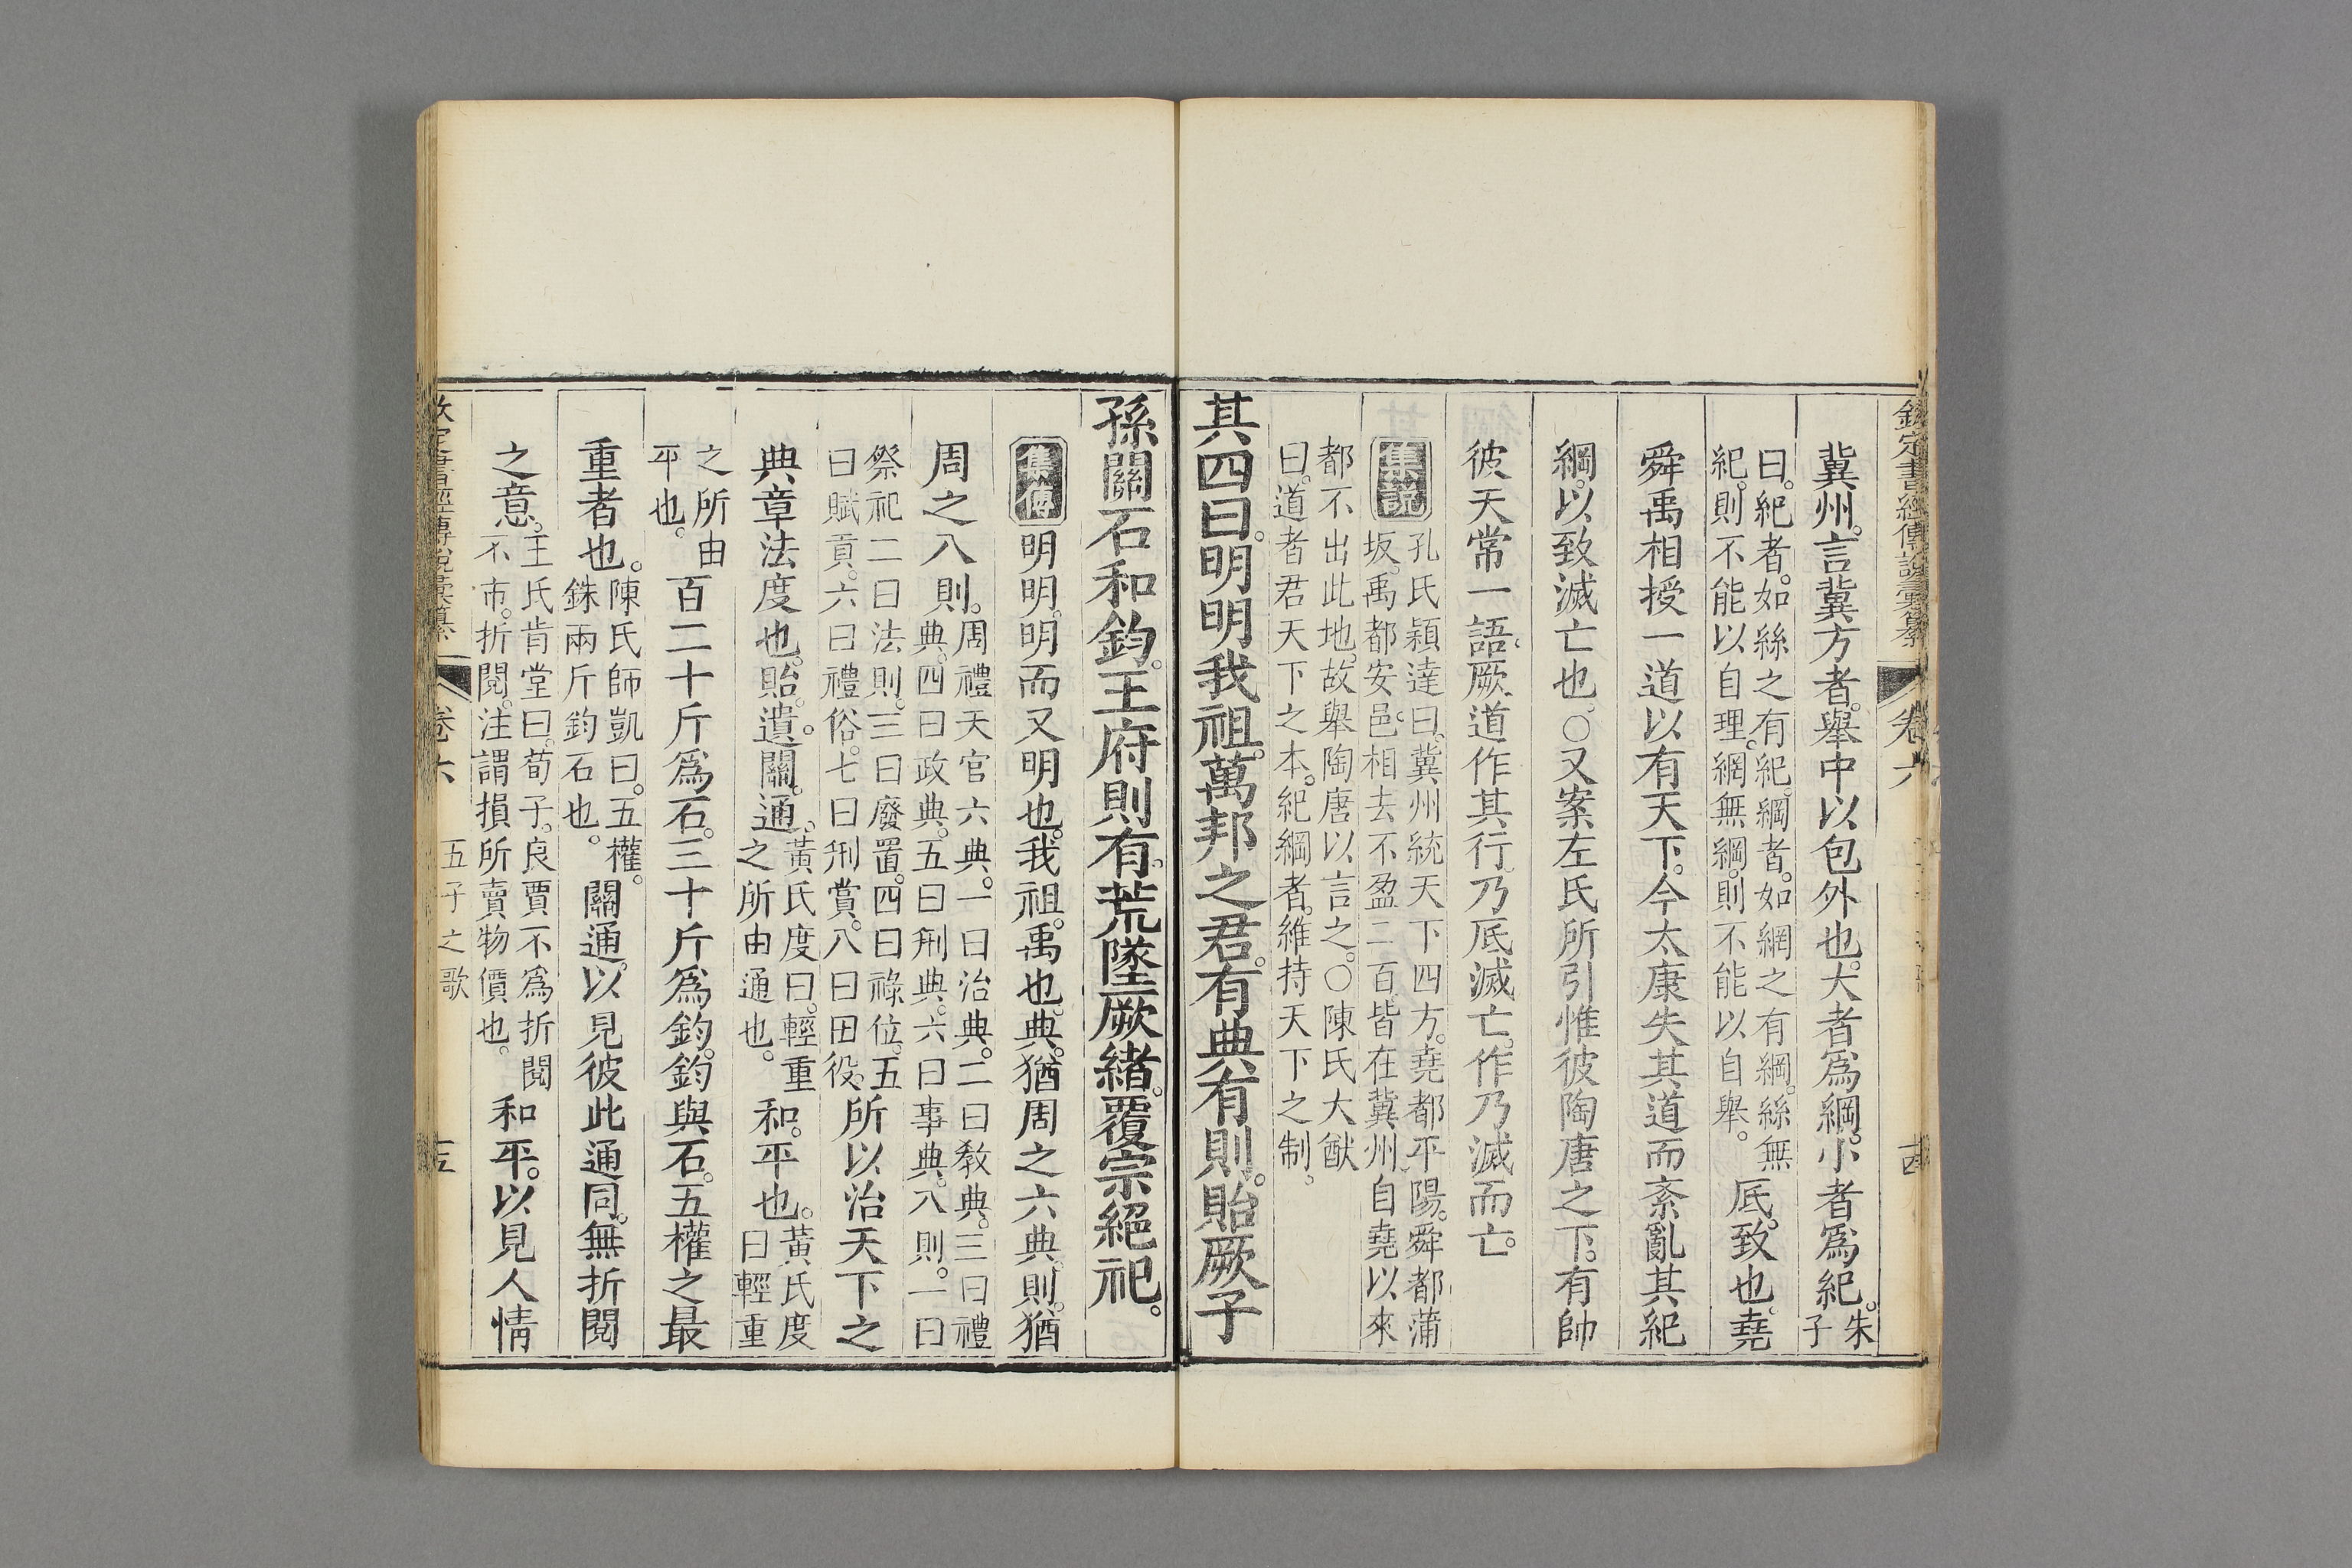 欽定書經傳說彙纂 卷六 十四
冀州。言冀方者。舉中以包外也。大者爲綱。小者爲紀。朱子
曰。紀者。如絲之有紀。綱者。如網之有綱。絲無
紀。則不能以自理。網無綱。則不能以自舉。厎。致也。堯
舜禹相授一道以有天下。今太康失其道而紊亂其紀
綱。以致滅亡也。○又案左氏所引惟彼陶唐之下。有帥
彼天常一語。厥道作其行。乃厎滅亡。作乃滅而亡。
集說 孔氏穎達曰。冀州統天下四方。堯都平陽。舜都蒲
坂。禹都安邑。相去不盈二百。皆在冀州。自堯以來
都不出此地。故舉陶唐以言之。○陳氏大猷
曰。道者君天下之本。紀綱者。維持天下之制。
其四曰。明明我祖。萬邦之君。有典有則。貽厥子
孫。關石和鈞。王府則有。荒墜厥緒。覆宗絕祀。
集傳 明明。明而又明也。我祖。禹也。典。猶周之六典。則。猶
周之八則。周禮天官六典。一曰治典。二曰教典。三曰禮
典。四曰政典。五曰刑典。六曰事典。八則。一曰
祭祀二曰法則。三曰廢置。四曰祿位。五
曰賦貢。六曰禮俗。七曰刑賞。八曰田役。所以治天下之
典章法度也。貽。遺。關。通。黃氏度曰。輕重
之所由通也。和。平也。黃氏度
曰輕重
之所由
平也。百二十斤爲石。三十斤爲鈞。鈞與石。五權之最
重者也。陳氏師凱曰。五權。
銖兩斤鈞石也。關通。以見彼此通同。無折閱
之意。王氏肯堂曰。荀子。良賈不爲折閱
不市。折閱。注謂損所賣物價也。和平。以見人情
卷六 五子之歌 十五